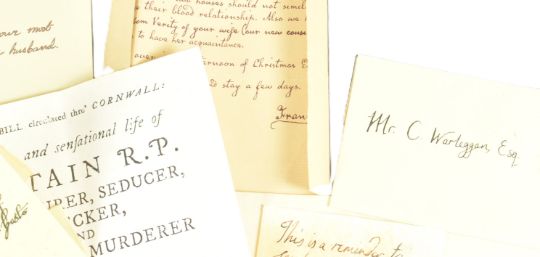 our most
husband.
houses should not
their blood relationship. Also we
Verity of your wife (our new
to have her acquaintance.
afternoon of Christmas
to stay a few days.
BILL circulated thro' CORNWALL:
and sensational life of
TAIN R.P.
SEDUCER,
CKER,
ND
MURDERER
Mr. C Warleggan, Esq
This is a reminder to